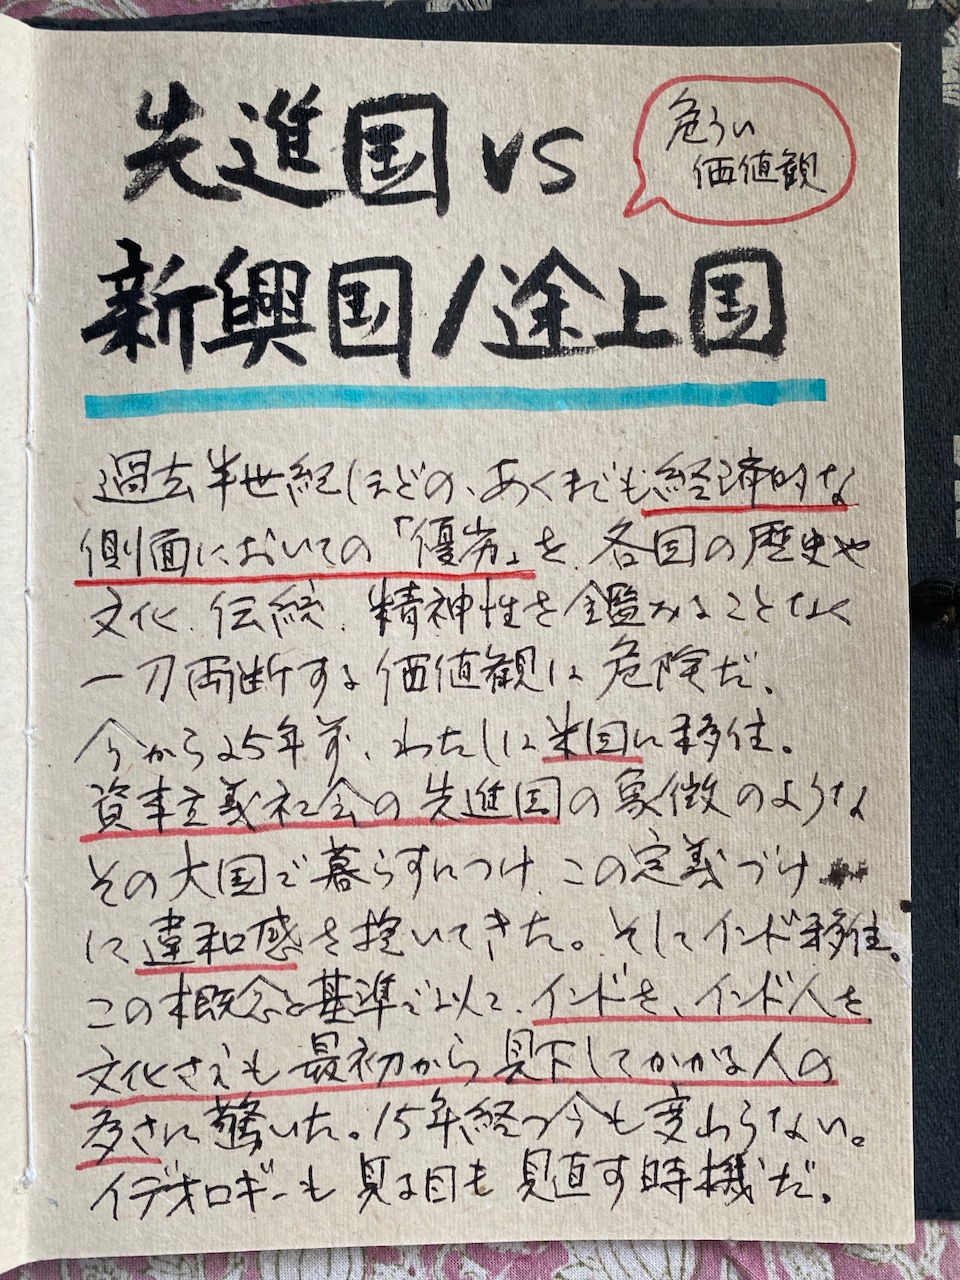 先進国 vs
危うい
価値観
新興国/途上国
過去半世紀ほどの、あくまでも経済的な
側面においての「優劣」を、各国の歴史や
文化、伝統、精神性を鑑みることなく
一刀両断する価値観は危険だ、
今から25年前、わたしは米国に移住。
資本主義社会の先進国の象徴のような
その大国で暮らすにつけ、この定義づけ
に違和感を抱いてきた。そしてインド移住。
この概念と基準で以て、インドを、インド人を
文化さえも最初から見下してかかる人の
多さに驚いた。15年経つ今も変わらない。
イデオロギーも見る目も見直す時機だ。